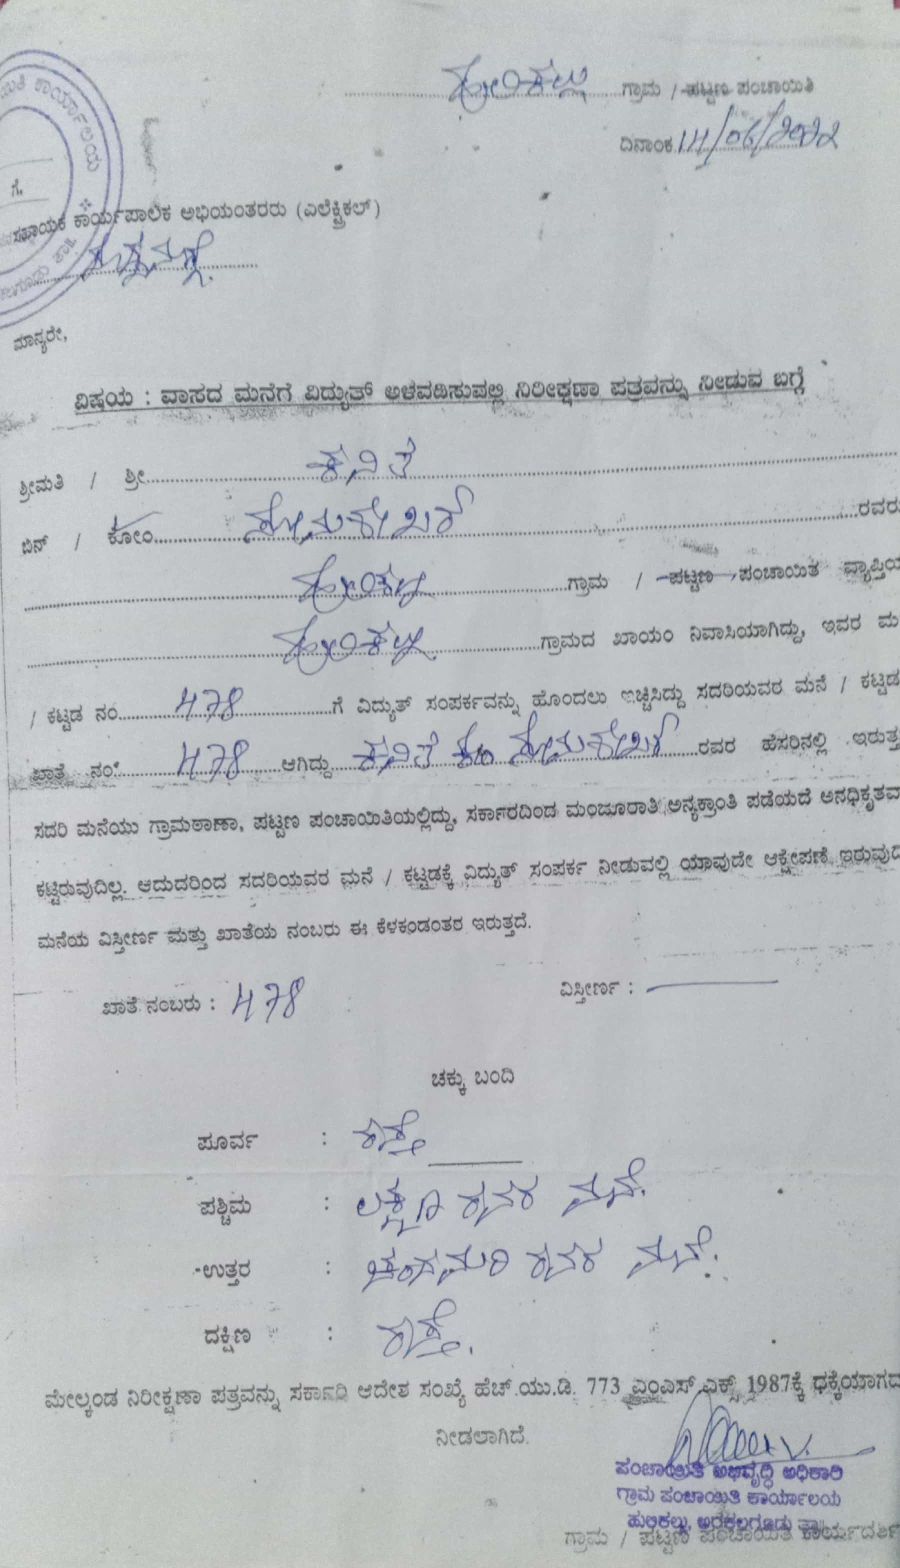 ಹುಲಿಕಲ್ಲು ಗ್ರಾಮ / ಪಟ್ಟಣ ಪಂಚಾಯಿತಿ
ದಿನಾಂಕ 14/06/2022
ಕಾರ್ಯಾಲಯ
ಗೆ,
ಸಹಾಯಕ ಕಾರ್ಯಪಾಲಕ ಅಭಿಯಂತರರು (ಎಲೆಕ್ಟ್ರಿಕಲ್)
ಮಾನ್ಯರೇ,
ವಿಷಯ : ವಾಸದ ಮನೆಗೆ ವಿದ್ಯುತ್ ಅಳವಡಿಸುವಲ್ಲಿ ನಿರೀಕ್ಷಣಾ ಪತ್ರವನ್ನು ನೀಡುವ ಬಗ್ಗೆ
ಶ್ರೀಮತಿ / ಶ್ರೀ ಕವಿತ
ಬಿನ್ / ಕೋಂ ಸೋಮಶೇಖರ್ ರವರು
ಹುಲಿಕಲ್ಲು ಗ್ರಾಮ / ಪಟ್ಟಣ ಪಂಚಾಯಿತ ವ್ಯಾಪ್ತಿಯ
ಹುಲಿಕಲ್ಲು ಗ್ರಾಮದ ಖಾಯಂ ನಿವಾಸಿಯಾಗಿದ್ದು, ಇವರ ಮ
/ ಕಟ್ಟಡ ನಂ 478 ಗೆ ವಿದ್ಯುತ್ ಸಂಪರ್ಕವನ್ನು ಹೊಂದಲು ಇಚ್ಛಿಸಿದ್ದು ಸದರಿಯವರ ಮನೆ / ಕಟ್ಟಡ
ಖಾತೆ ನಂ 478 ಆಗಿದ್ದು ಕವಿತ ಕೋಂ ಸೋಮಶೇಖರ್ ರವರ ಹೆಸರಿನಲ್ಲಿ ಇರುತ್ತ
ಸದರಿ ಮನೆಯು ಗ್ರಾಮಠಾಣಾ, ಪಟ್ಟಣ ಪಂಚಾಯಿತಿಯಲ್ಲಿದ್ದು, ಸರ್ಕಾರದಿಂದ ಮಂಜೂರಾತಿ ಅನ್ಯಕ್ರಾಂತಿ ಪಡೆಯದೆ ಅನಧಿಕೃತವಾ
ಕಟ್ಟಿರುವುದಿಲ್ಲ. ಆದುದರಿಂದ ಸದರಿಯವರ ಮನೆ / ಕಟ್ಟಡಕ್ಕೆ ವಿದ್ಯುತ್ ಸಂಪರ್ಕ ನೀಡುವಲ್ಲಿ ಯಾವುದೇ ಆಕ್ಷೇಪಣೆ ಇರುವುದಿ
ಮನೆಯ ವಿಸ್ತೀರ್ಣ ಮತ್ತು ಖಾತೆಯ ನಂಬರು ಈ ಕೆಳಕಂಡಂತರ ಇರುತ್ತದೆ.
ಖಾತೆ ನಂಬರು : 478 ವಿಸ್ತೀರ್ಣ :
ಚಕ್ಕು ಬಂದಿ
ಪೂರ್ವ : ರಸ್ತೆ
ಪಶ್ಚಿಮ : ರವರ ಮನೆ.
ಉತ್ತರ : ರವರ ಮನೆ.
ದಕ್ಷಿಣ : ರಸ್ತೆ.
ಮೇಲ್ಕಂಡ ನಿರೀಕ್ಷಣಾ ಪತ್ರವನ್ನು ಸರ್ಕಾರಿ ಆದೇಶ ಸಂಖ್ಯೆ ಹೆಚ್.ಯು.ಡಿ. 773 ಎಂಎಸ್ ಎಕ್ಸ್ 1987ಕ್ಕೆ ಧಕ್ಕೆಯಾಗದ
ನೀಡಲಾಗಿದೆ.
ಪಂಚಾಯಿತಿ ಅಭಿವೃದ್ಧಿ ಅಧಿಕಾರಿ
ಗ್ರಾಮ ಪಂಚಾಯಿತಿ ಕಾರ್ಯಾಲಯ
ಹುಲಿಕಲ್ಲು, ಅರಕಲಗೂಡು ತಾ||
ಗ್ರಾಮ / ಪಟ್ಟಣ ಪಂಚಾಯಿತಿ ಕಾರ್ಯದರ್ಶಿ